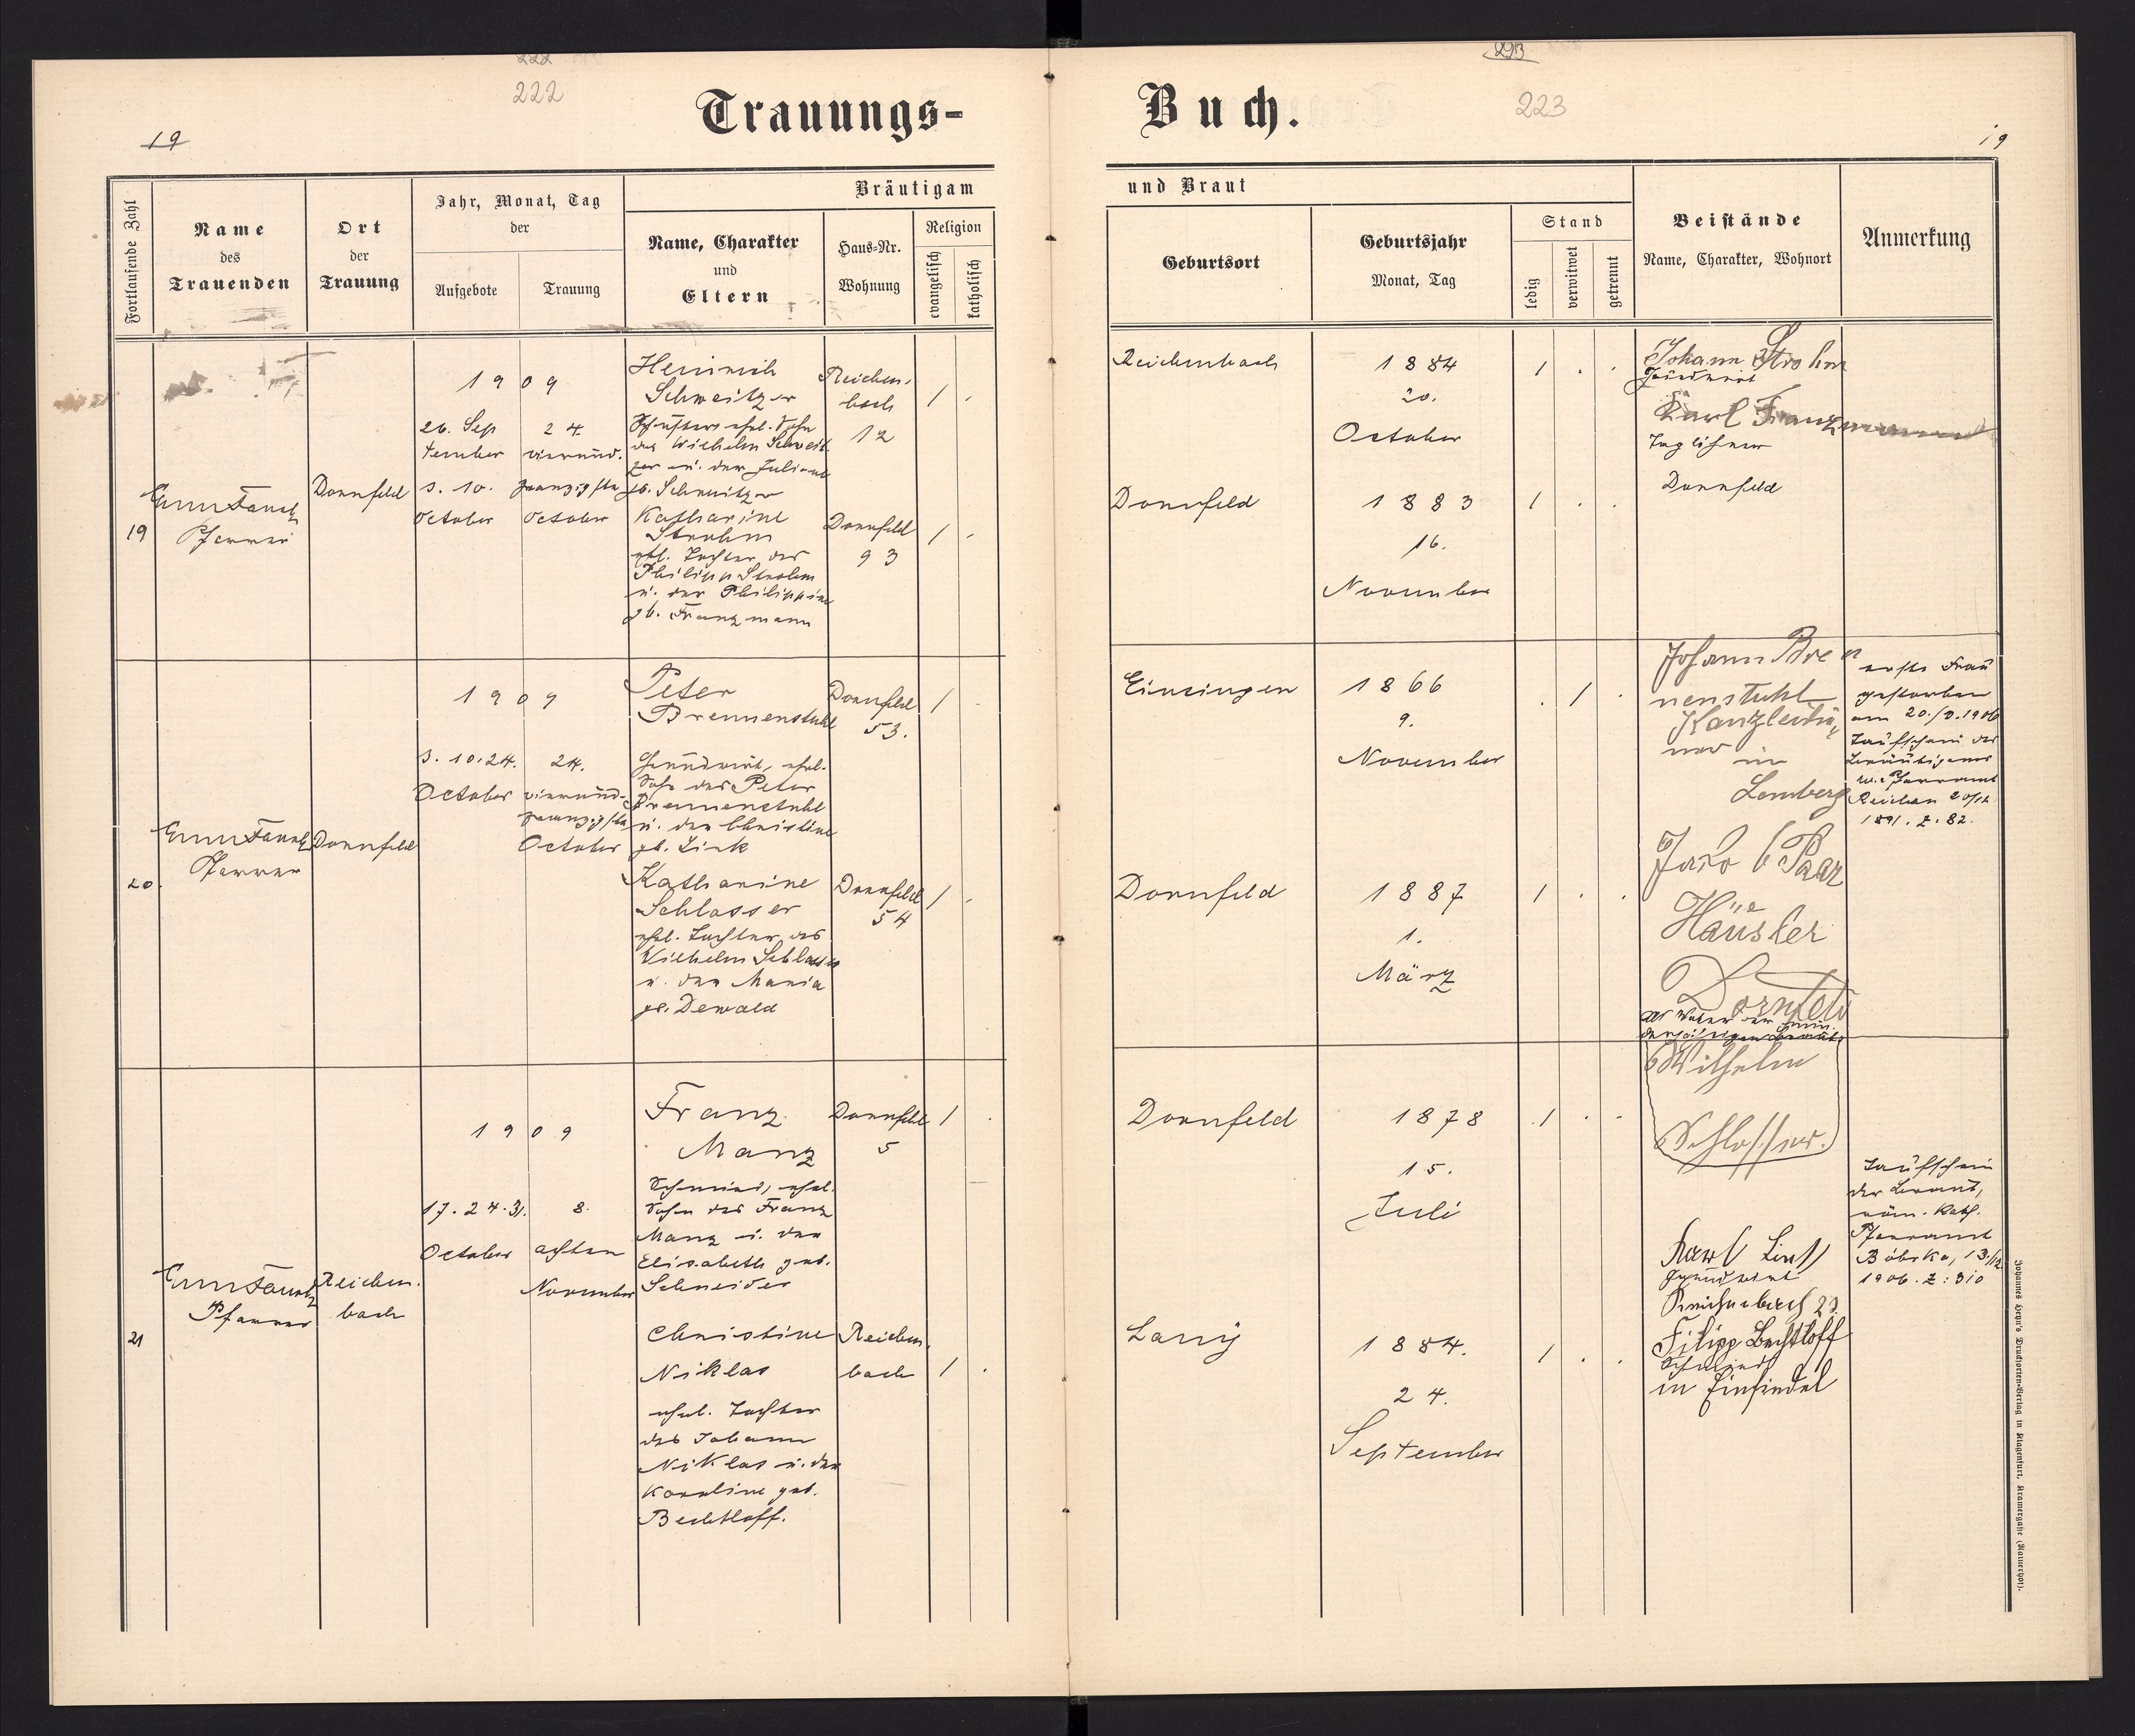 222
222
Trauungs-
19
Fortlaufende Zahl
Name
des
Trauenden
Ort
der
Trauung
Jahr, Monat, Tag
der
Aufgebote
Trauung
Bräutigam
Name, Charakter
und
Eltern
Haus-Nr.
Wohnung
Religion
evangelisch
katholisch
19
Pfarrer
Dornfeld
1909
26. Sep
tember
3. 10.
October
24.
vierund-
zwanzigsten
October
Heinrich
Schweitzer
ehel. Sohn
des Wilhelm Schweit
zer u. der Juliane
gb. Schweitzer
Reichen-
bach
12
/
Katharine
Strohm
ehl. Tochter des
Philipp Strohm
u. der Philippine
gb. Franzmann
Dornfeld
93
/
20
Pfarrer
Dornfeld
1909
3. 10. 24.
October
24.
vierund-
zwanzigsten
October
Peter
Brennenstuhl
Grundwirt, ehel.
Sohn des Peter
Brennenstuhl
u. der Christine
gb. Link
Dornfeld
53.
/
Katharine
Schlosser
ehel. Tochter des
Wilhelm Schlosser
u. der Maria
gb. Dewald
Dornfeld
54
/
21
Pfarrer
Reichen-
bach
1909
17. 24. 31.
October
8.
achten
November
Franz
Manz
Schmied, ehel.
Sohn des Franz
Manz u. der
Elisabeth geb.
Schneider
Dornfeld
5
/
Christine
Niklas
ehel. Tochter
des Johann
Niklas u. der
Karoline geb.
Bechtloff.
Reichen-
bach
/
293
Buch.
223
19
und Braut
Geburtsort
Geburtsjahr
Monat, Tag
Stand
ledig
verwitwet
getrennt
Beistände
Name, Charakter, Wohnort
Anmerkung
Reichenbach
1884
20.
October
/
Johann Strohm
Grundwirt
Karl Franzmann
Taglöhner
Dornfeld
Dornfeld
1883
16.
November
/
Einsingen
1866
9.
November
/
Johann Bren
nenstuhl
Kanzleidie
ner
in
Lemberg
erste Frau
gestorben
am 20./9. 1906
Taufschein des
Bräutigams
Pfarramt
1891. Z. 82.
Dornfeld
1887
1.
März
/
Jakob Paar
Häusler
Dornfeld
als Vater der min
derjährigen Braut:
Wilhelm
Schlosser.
Dornfeld
1878
15.
Juli
/
Karl Link
Grundwirt
Reichenbach 23.
Filipp Bechtloff
Schmied
in Einsiedel
Taufschein
der Braut,
röm. kath.
Pfarramt
Bóbrka, 13/12
1906. Z: 310
1884.
24.
September
/
Johannes Heyn's Drucksorten-Verlag in Klagenfurt, Kramergasse (Ramerhof).